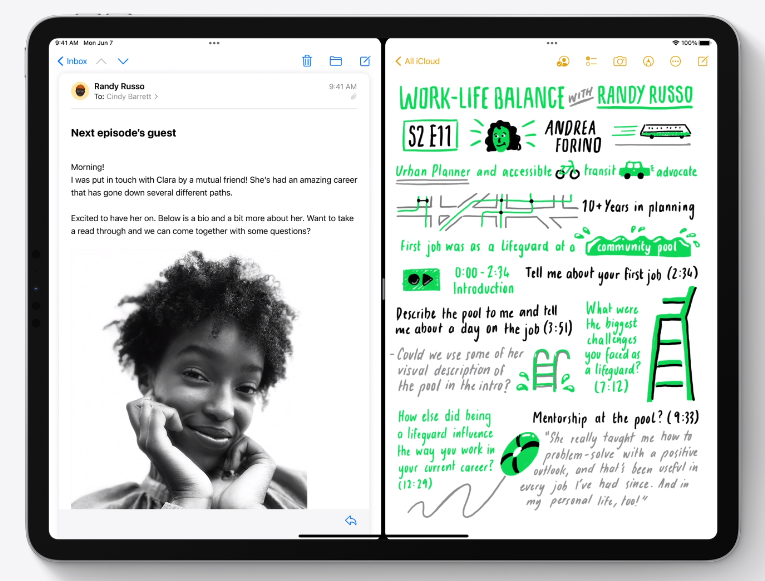 9:41 AM Mon Jun 7
Inbox
Randy Russo
9:41 AM
To: Cindy Barrett
Next episode's guest
Morning!
I was put in touch with Clara by a mutual friend! She's had an amazing career
that has gone down several different paths.
Excited to have her on. Below is a bio and a bit more about her. Want to take
a read through and we can come together with some questions?
100%
All iCloud
WORK-LIFE BALANCE WITH RANDY RUSSO
S2 E11
ANDREA
FORINO
Urban Planner and accessible transit advocate
10+ Years in planning
First job was as a lifeguard at a community pool
0:00 - 2:34
Introduction
Tell me about your first job (2:34)
Describe the pool to me and tell
me about a day on the job (3:51)
What were
the biggest
challenges
you faced as
a lifeguard?
(7:12)
- Could we use some of her
visual description of
the pool in the intro?
How else did being
a lifeguard influence
the way you work in
your current career?
(12:29)
Mentorship at the pool? (9:33)
"She really taught me how to
problem-solve with a positive
outlook, and that's been useful in
every job I've had since. And in
my personal life, too!"